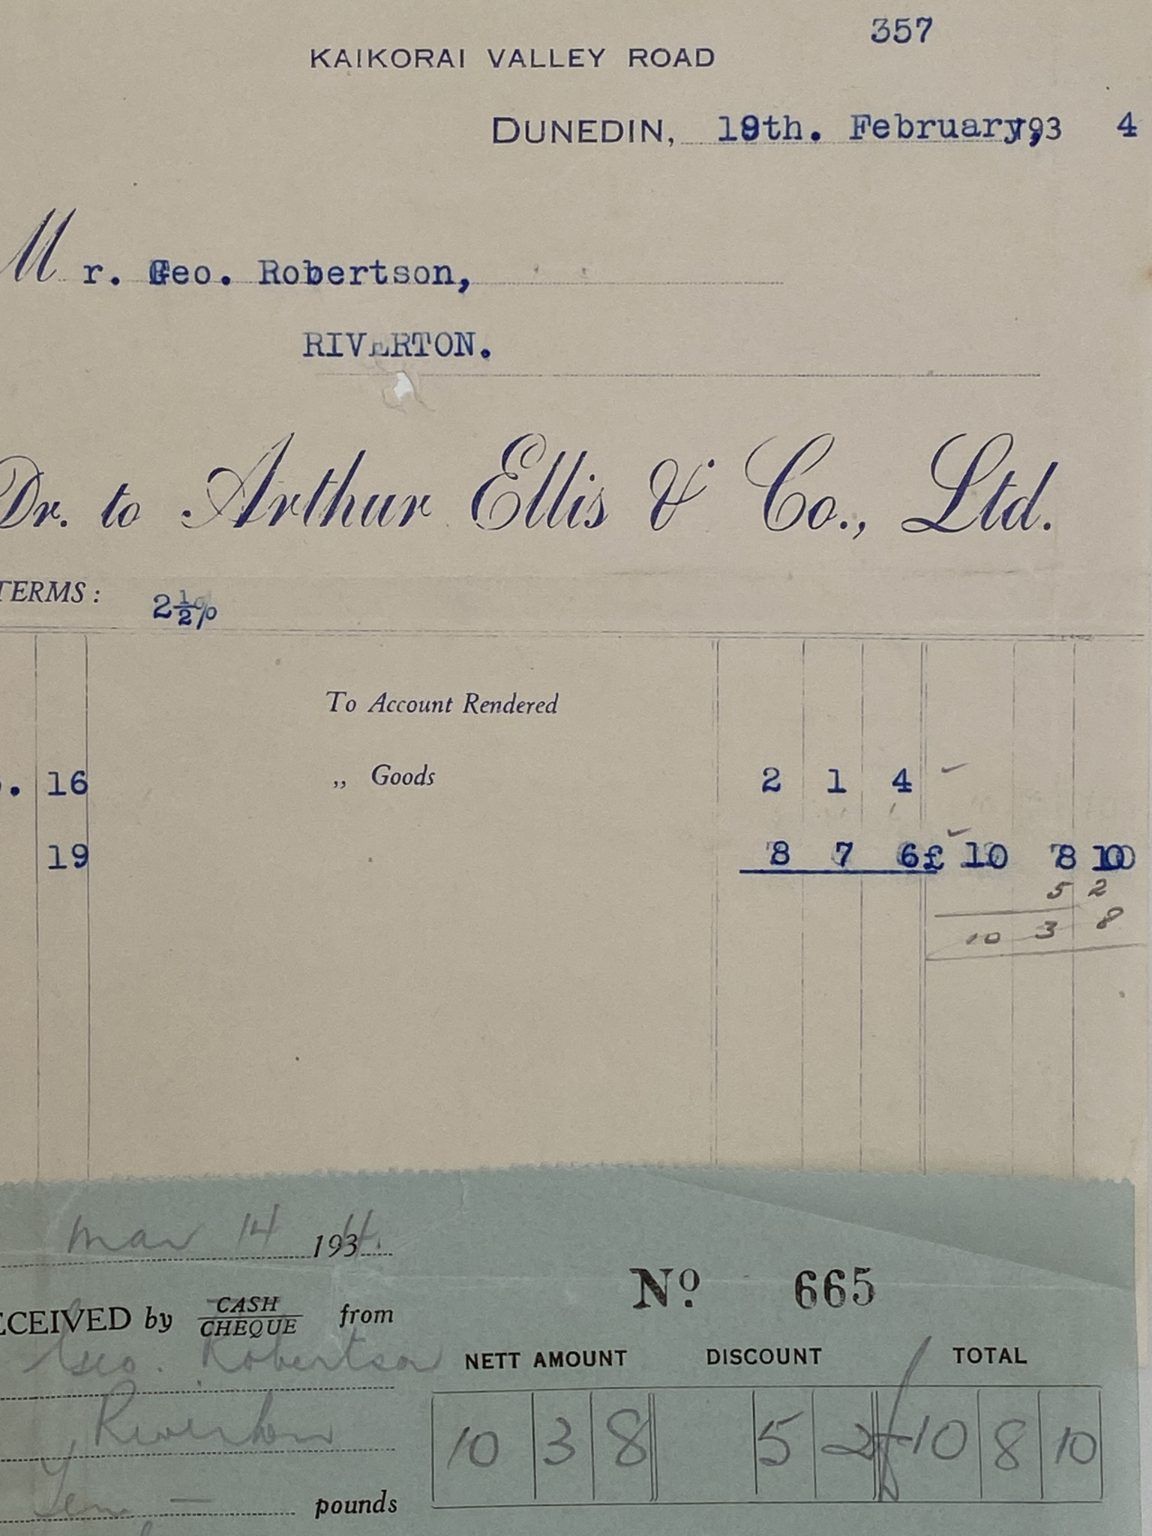 357
KAIKORAI VALLEY ROAD
DUNEDIN, 19th. February, 193 4
Mr. Geo. Robertson,
RIVERTON.
Dr. to Arthur Ellis & Co., Ltd.
TERMS: 2½%
To Account Rendered
. 16 „ Goods 2 1 4
19 8 7 6 £ 10 8 10
5 2
10 3 8
Mar 14 1934.
No. 665
ECEIVED by CASH
CHEQUE from
Geo. Robertson
NETT AMOUNT DISCOUNT TOTAL
Riverton
10 3 8 5 2 £10 8 10
Ten — pounds